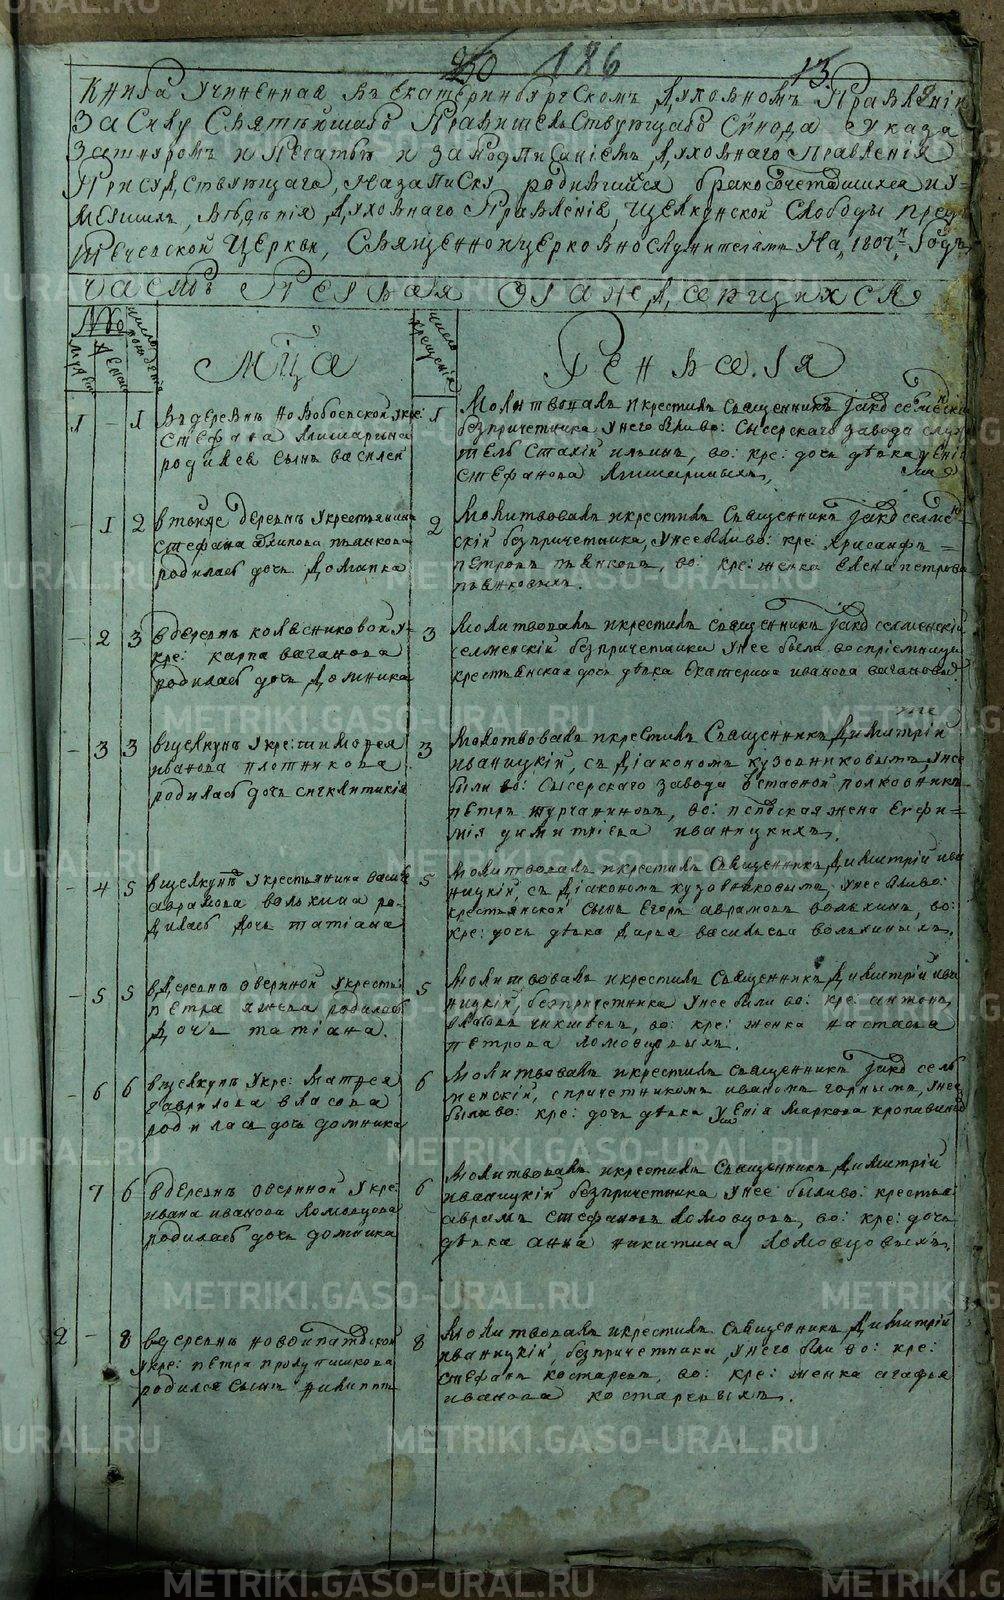 186
13
Книга учиненная въ екатеринбургскомъ духовномъ правленіи
За силу Святѣйшаго Правительствующаго Сѵнода указа
За шнуромъ и печатью и за подписаніемъ духовнаго правленія
Присудствующаго, на записку родившихся бракосочетавшихся и у-
мерших, вѣденія духовнаго правленія, Щелкунской слободы пред-
течевской церкви, священноицерковнослужителямъ На 1807й Годъ
часть первая о ражедающихся
№
число рожденія
муж:
женс:
Мца
число крещенія
Генваря
1 - 1
въ деревнѣ новобоевской у кре:
Стефана
родился сынъ василей
1
Молитвовалъ и крестилъ священникъ Іаковъ селменскій
без причетника у него были во: сысерскаго завода служи-
тель Стахій ильинъ, во: кре: дочь дѣвка
Стефанова
- 1 2
в той же деревнѣ у крестьянина
Стефана пьянкова
родилась дочь Домника
2
Молитвовалъ и крестилъ священникъ Іаковъ селмен-
скій без причетника, у нее были во: кре: Хрисанфъ
петровъ пьянковъ, во: кре: женка Елена петрова
пьянковых.
- 2 3
в деревнѣ колясниковой у
кре: карпа ваганова
родилась дочь Домника
3
молитвовалъ и крестилъ священникъ Іаковъ селменскій
селменскій без причетника у нее была воспріемница
крестьянская дочь дѣвка Екатерина иванова ваганова
- 3 3
в щелкунѣ у кре: тимофея
иванова плотникова
родилась дочь синклитикія
3
молитвовалъ и крестилъ священникъ Димитрій
иваницкій, съ діакономъ кузовниковымъ у нее
были во: сысерскаго завода отставной полковникъ
петръ турчаниновъ, во: поповская жена Евфи-
мія димитріева иваницкихъ,
- 4 5
в щелкунѣ у крестьянина васил:
аврамова вольхина ро-
дилась дочь татіана
5
молитвовалъ и крестилъ священникъ Димитрій ива
ницкій, съ діакономъ кузовниковымъ, у нее были во:
крестьянской сынъ Егоръ аврамовъ вольхинъ, во:
кре: дочь дѣвка Дарья васильева вольхиныхъ,
- 5 5
в деревнѣ овериной у кресть:
петра родилась
Дочь татіана.
5
молитвовалъ и крестилъ священникъ Димитрій ива
ницкій, без причетника у нее были во: кре: антонъ
во: кре: женка настасья
петрова ломовцовыхъ.
- 6 6
в щелкунѣ у кре: матфея
гаврилова власова
родилась дочь домника
6
молитвовалъ и крестилъ священникъ Іаковъ сель
менскій, с причетникомъ иваномъ горнымъ, у нея
была во: кре: дочь дѣвка маркова
7 6
в деревнѣ овериной у кре
ивана иванова ломовцова
родилась дочь домника
6
молитвовалъ и крестилъ священникъ Димитрій
иваницкій без причетника у нее были во: крестья:
аврамъ стефановъ ломовцовъ, во: кре: дочь
дѣвка анна никитина ломовцовыхъ,
2 - 8
в деревнѣ новоипатовской
у кре: петра
родился сынъ филиппъ
8
молитвовалъ и крестилъ священникъ Димитрій
иваницкій, без причетника, у него были во: кре:
стефанъ костаревъ, во: кре: женка агафья
иванова костаревыхъ.
METRIKI.GASO-URAL.RU